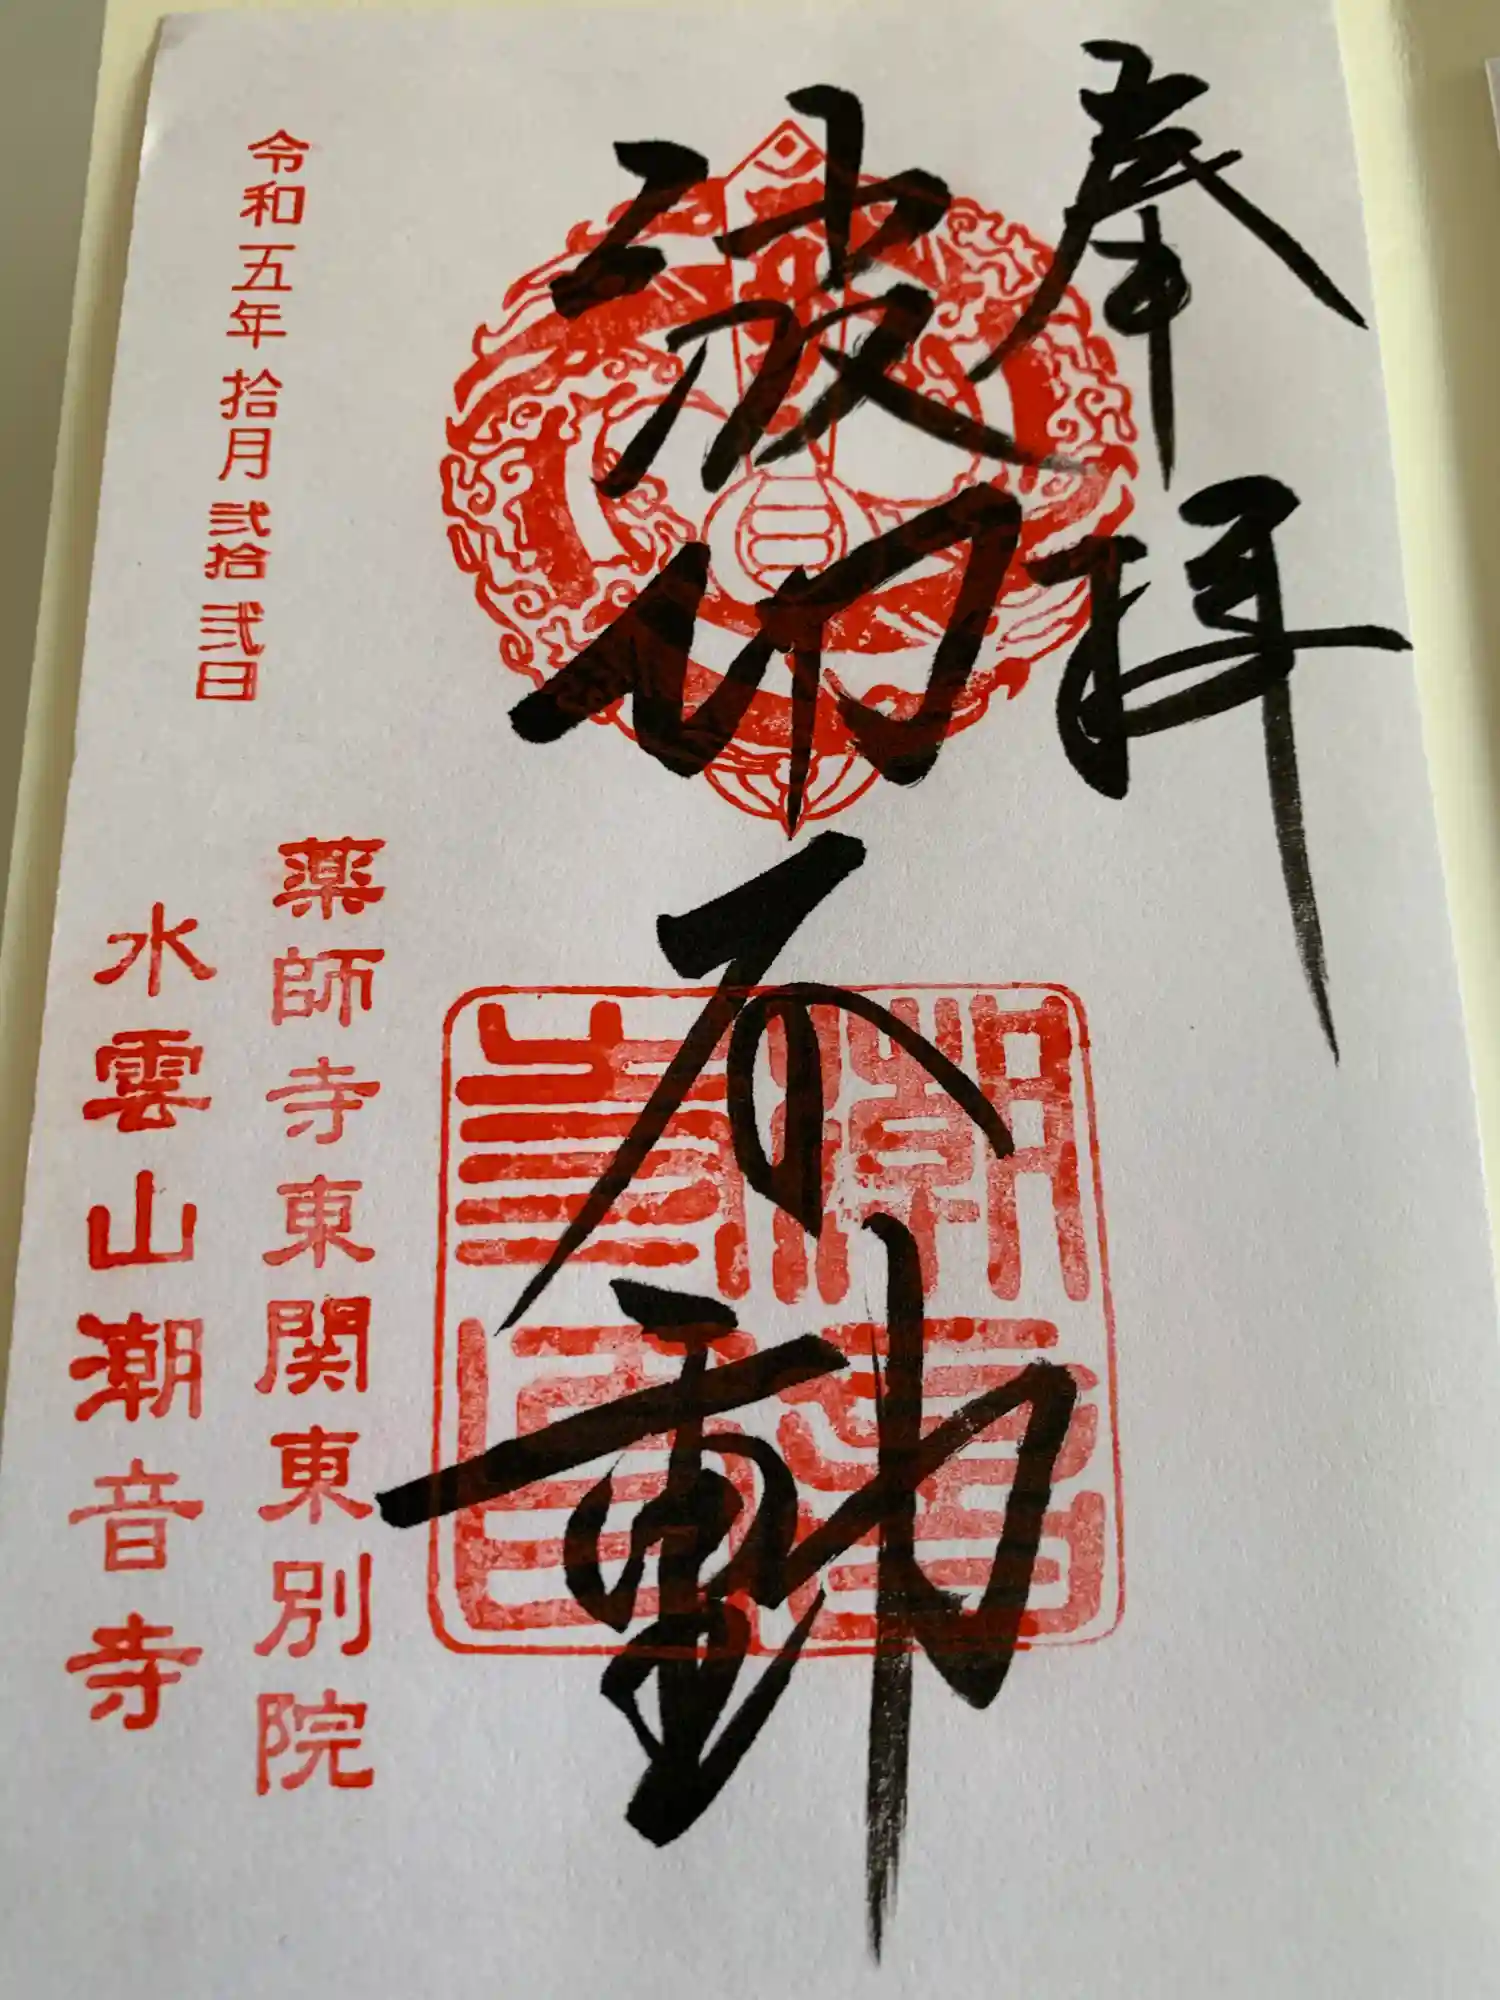 奉拝
波切不動
薬師寺東関東別院
水雲山潮音寺
令和五年拾月弐拾弐日